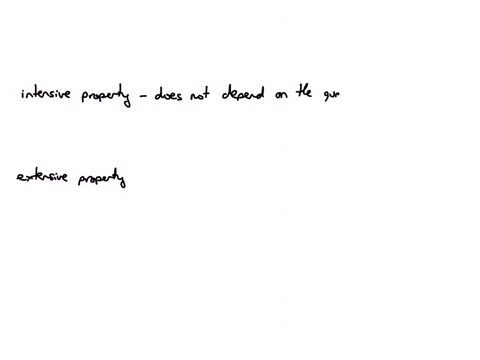 intensive property - does not depend on the qua
extensive property